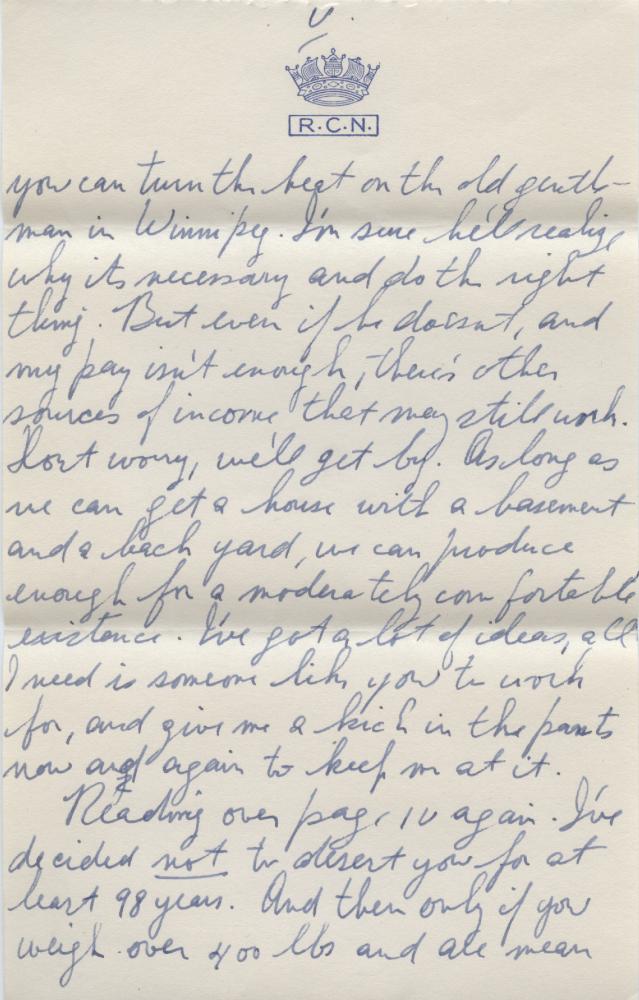 V
R.C.N.
you can turn the heat on the old gentle-
man in Winnipeg. I'm sure he'll realize
why its necessary and do the right
thing. But even if he doesnt, and
my pay isn't enough, there's other
sources of income that may still work.
Dont worry, we'll get by. As long as
we can get a house with a basement
and a back yard, we can produce
enough for a moderately comfortable
existence. I've got a lot of ideas, all
I need is someone like you to work
for, and give me a kick in the pants
now and again to keep me at it.
Reading over page IV again. I've
decided not to desert you for at
least 98 years. And then only if you
weigh over 400 lbs and are mean